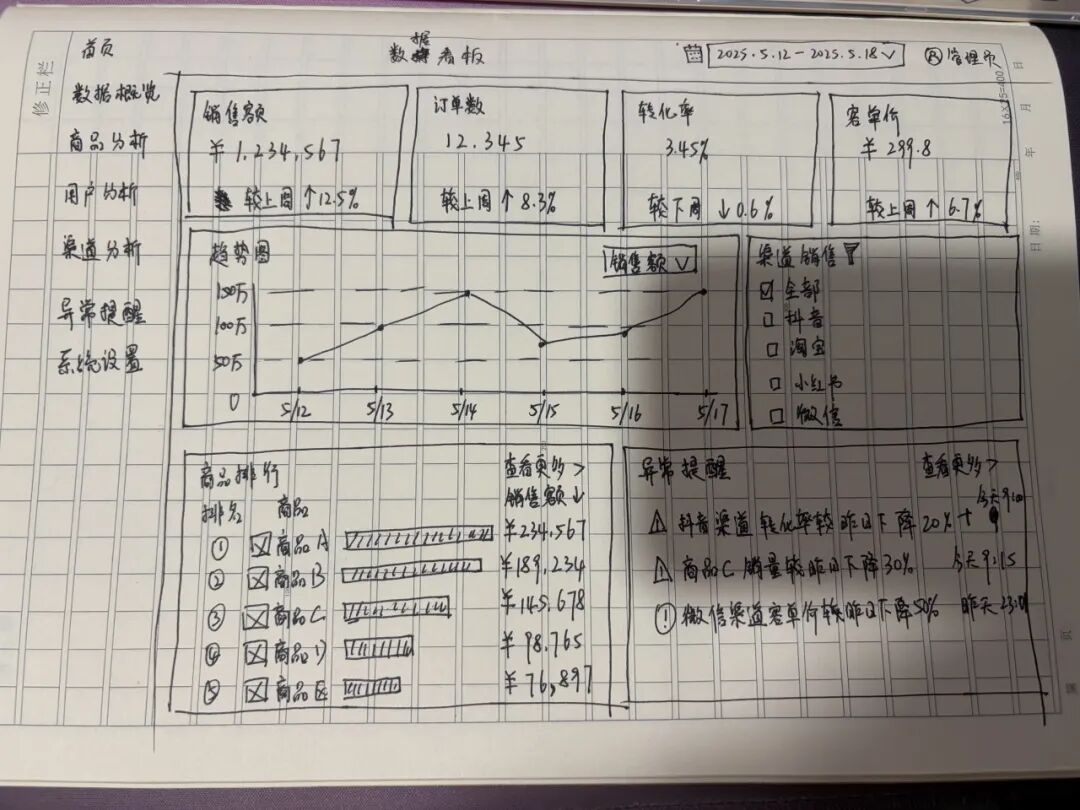 首页
数据概览
商品分析
用户分析
渠道分析
异常提醒
系统设置
数据看板
2025.5.12-2025.5.18
管理员
销售额
¥1,234,567
较上周↑12.5%
订单数
12.345
较上周↑8.3%
转化率
3.45%
较下周↓0.6%
客单价
¥299.8
较上周↑6.7%
趋势图
销售额
150万
100万
50万
0
5/12 5/13 5/14 5/15 5/16 5/17
渠道销售
全部
抖音
淘宝
小红书
微信
商品排行 查看更多>
排名 商品 销售额↓
① 商品A ¥234,567
② 商品B ¥189,234
③ 商品C ¥145,678
④ 商品D ¥98.765
⑤ 商品E ¥76,897
异常提醒 查看更多>
抖音渠道转化率较昨日下降20%+ 今天9:00
商品C销量较昨日下降30% 今天9:15
微信渠道客单价较昨日下降50% 昨天23:01
修正栏
16×25=400
年 月 日
日期:
第 页